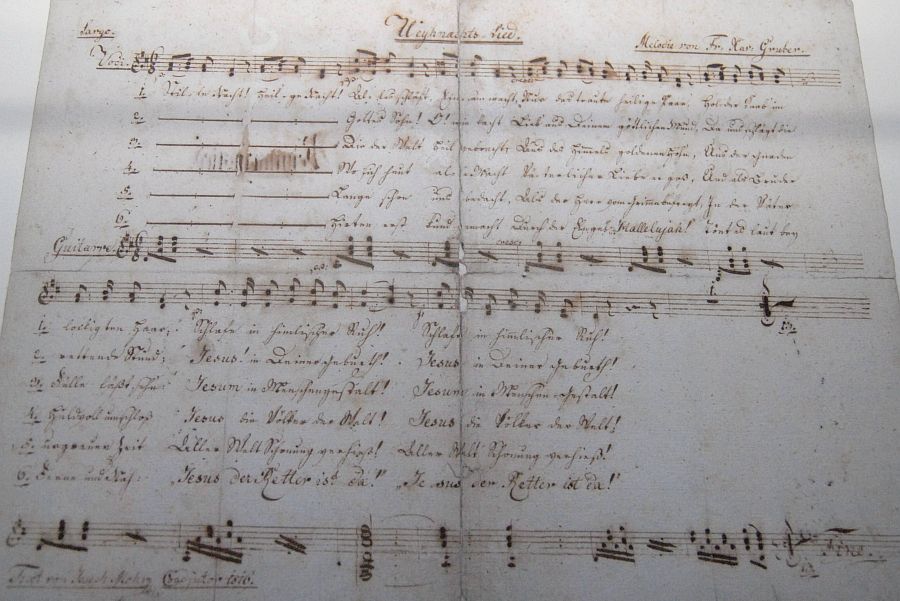 Largo. Weyhnachts-Lied. Melodie von Fr. Xav. Gruber.
Voci.
1. Stille Nacht! Heilige Nacht! Alles schläft. Einsam wacht, Nur das traute heilige Paar. Holder Knab im
2. Gottes Sohn! O! wie lacht Lieb aus Deinem göttlichen Mund, Da uns schlägt die
3. Die der Welt Heil gebracht, Aus des Himmels goldenen Höhn, Aus der Gnaden
4. Wo sich heut alle Macht Väterlicher Liebe ergoß, Und als Bruder
5. Lange schon uns bedacht, Als der Herr vom Grimme befreyt, In der Väter
6. Hirten erst kundgemacht Durch der Engel Hallelujah! Tönt es laut bey
Guitarre.
1. lockigten Haar; Schlafe in himlischer Ruh! Schlafe in himlischer Ruh!
2. rettende Stund; Jesus! in Deiner Geburth! Jesus in Deiner Geburth!
3. Fülle läßt sehn: Jesum in Menschengestalt! Jesum in Menschen-Gestalt!
4. Huldvoll umschloß Jesus die Völker der Welt! Jesus die Völker der Welt!
5. urgrauer Zeit Aller Welt Schonung verhieß! Aller Welt Schonung verhieß!
6. Ferne und Nah: „Jesus der Retter ist da!" „Jesus der Retter ist da!"
Fine.
Text von Joseph Mohr Coadjutor 1816.